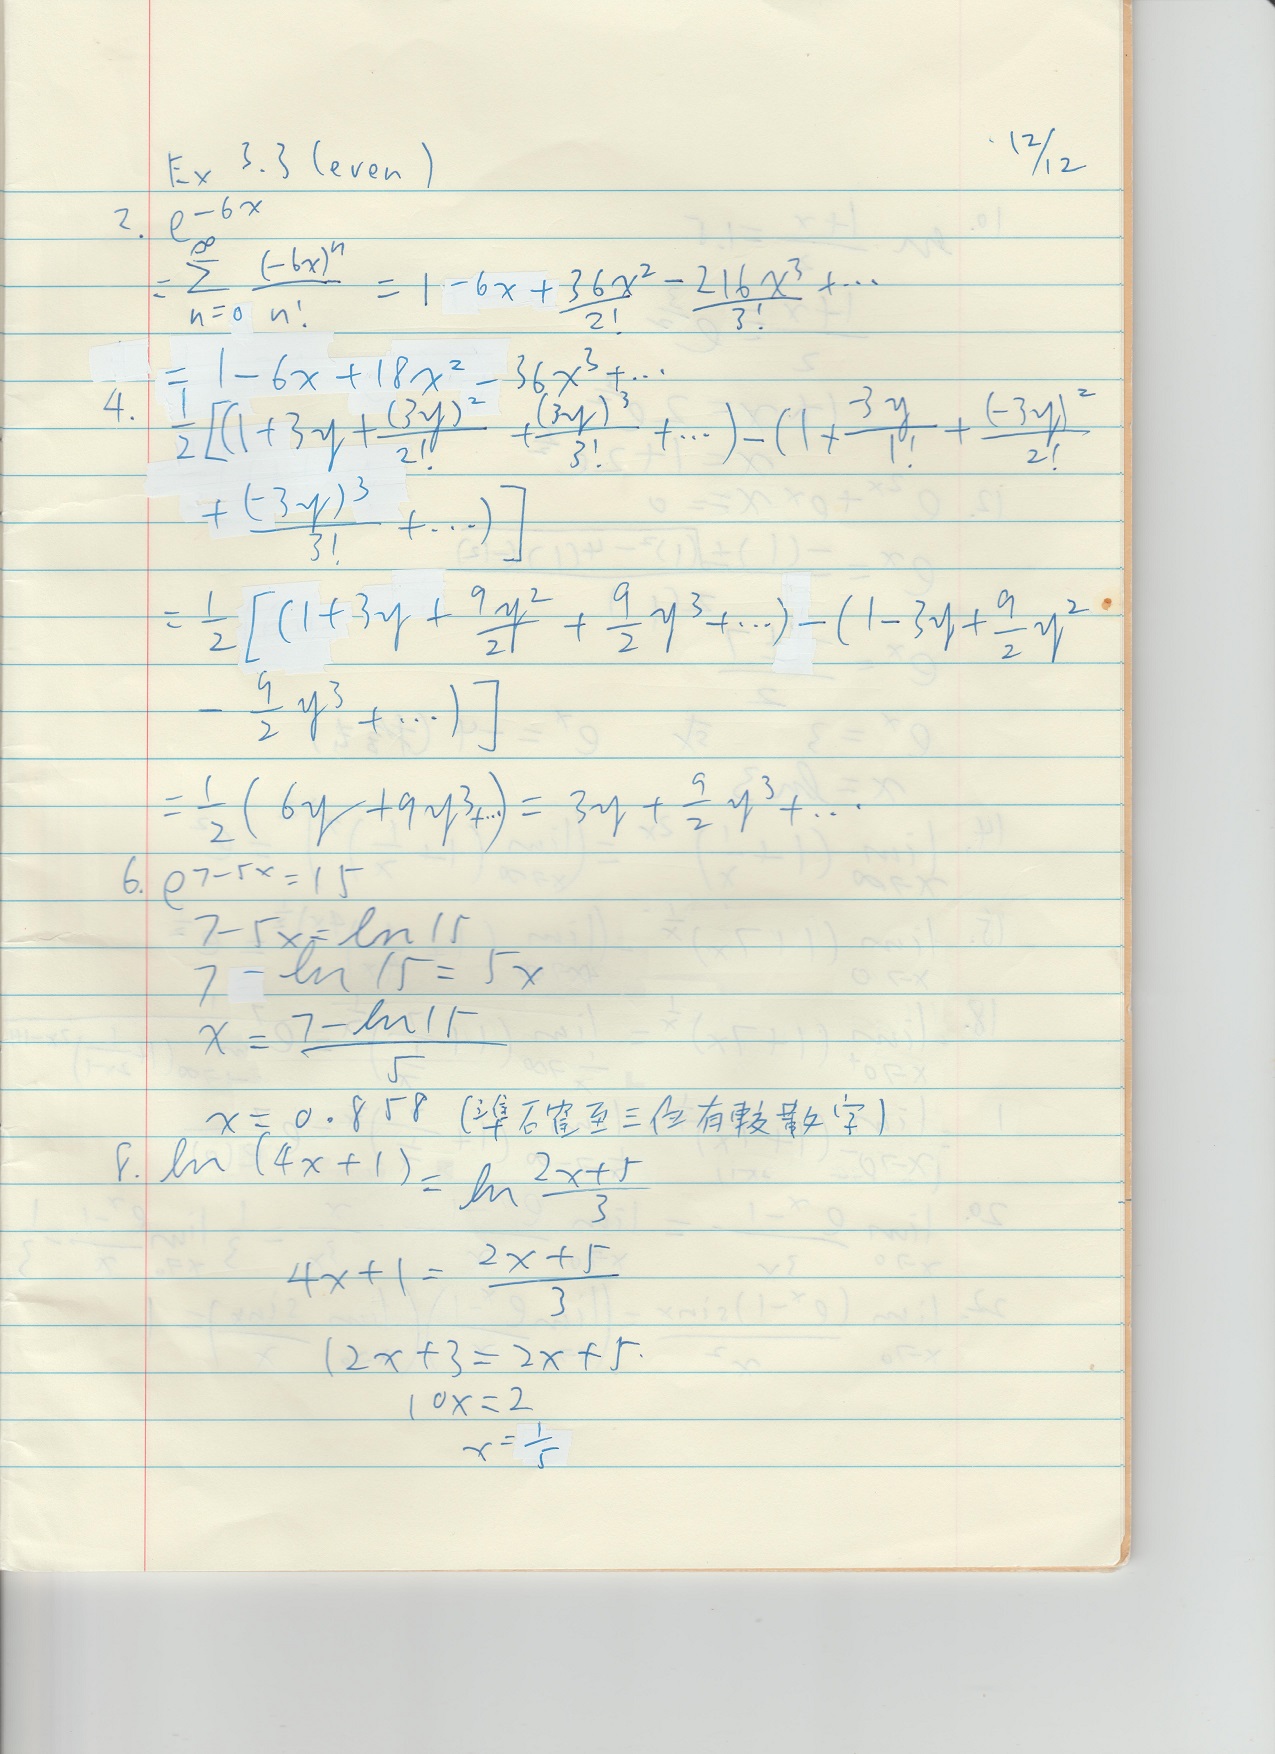 Ex 3.3 (even) 12/12
2. e^{-6x}
= \sum_{n=0}^{\infty} \frac{(-6x)^n}{n!} = 1 - 6x + \frac{36x^2}{2!} - \frac{216x^3}{3!} + ...
= 1 - 6x + 18x^2 - 36x^3 + ...
4. \frac{1}{2} [(1 + 3y + \frac{(3y)^2}{2!} + \frac{(3y)^3}{3!} + ...) - (1 + \frac{-3y}{1!} + \frac{(-3y)^2}{2!}
+ \frac{(-3y)^3}{3!} + ...)]
= \frac{1}{2} [(1 + 3y + \frac{9y^2}{2} + \frac{9}{2} y^3 + ...) - (1 - 3y + \frac{9}{2} y^2
- \frac{9}{2} y^3 + ...)]
= \frac{1}{2} (6y + 9y^3 + ...) = 3y + \frac{9}{2} y^3 + ...
6. e^{7-5x} = 15
7 - 5x = ln 15
7 - ln 15 = 5x
x = \frac{7 - ln 15}{5}
x = 0.858 (準確至三位有效數字)
8. ln (4x + 1) = ln \frac{2x+5}{3}
4x + 1 = \frac{2x+5}{3}
12x + 3 = 2x + 5
10x = 2
x = \frac{1}{5}